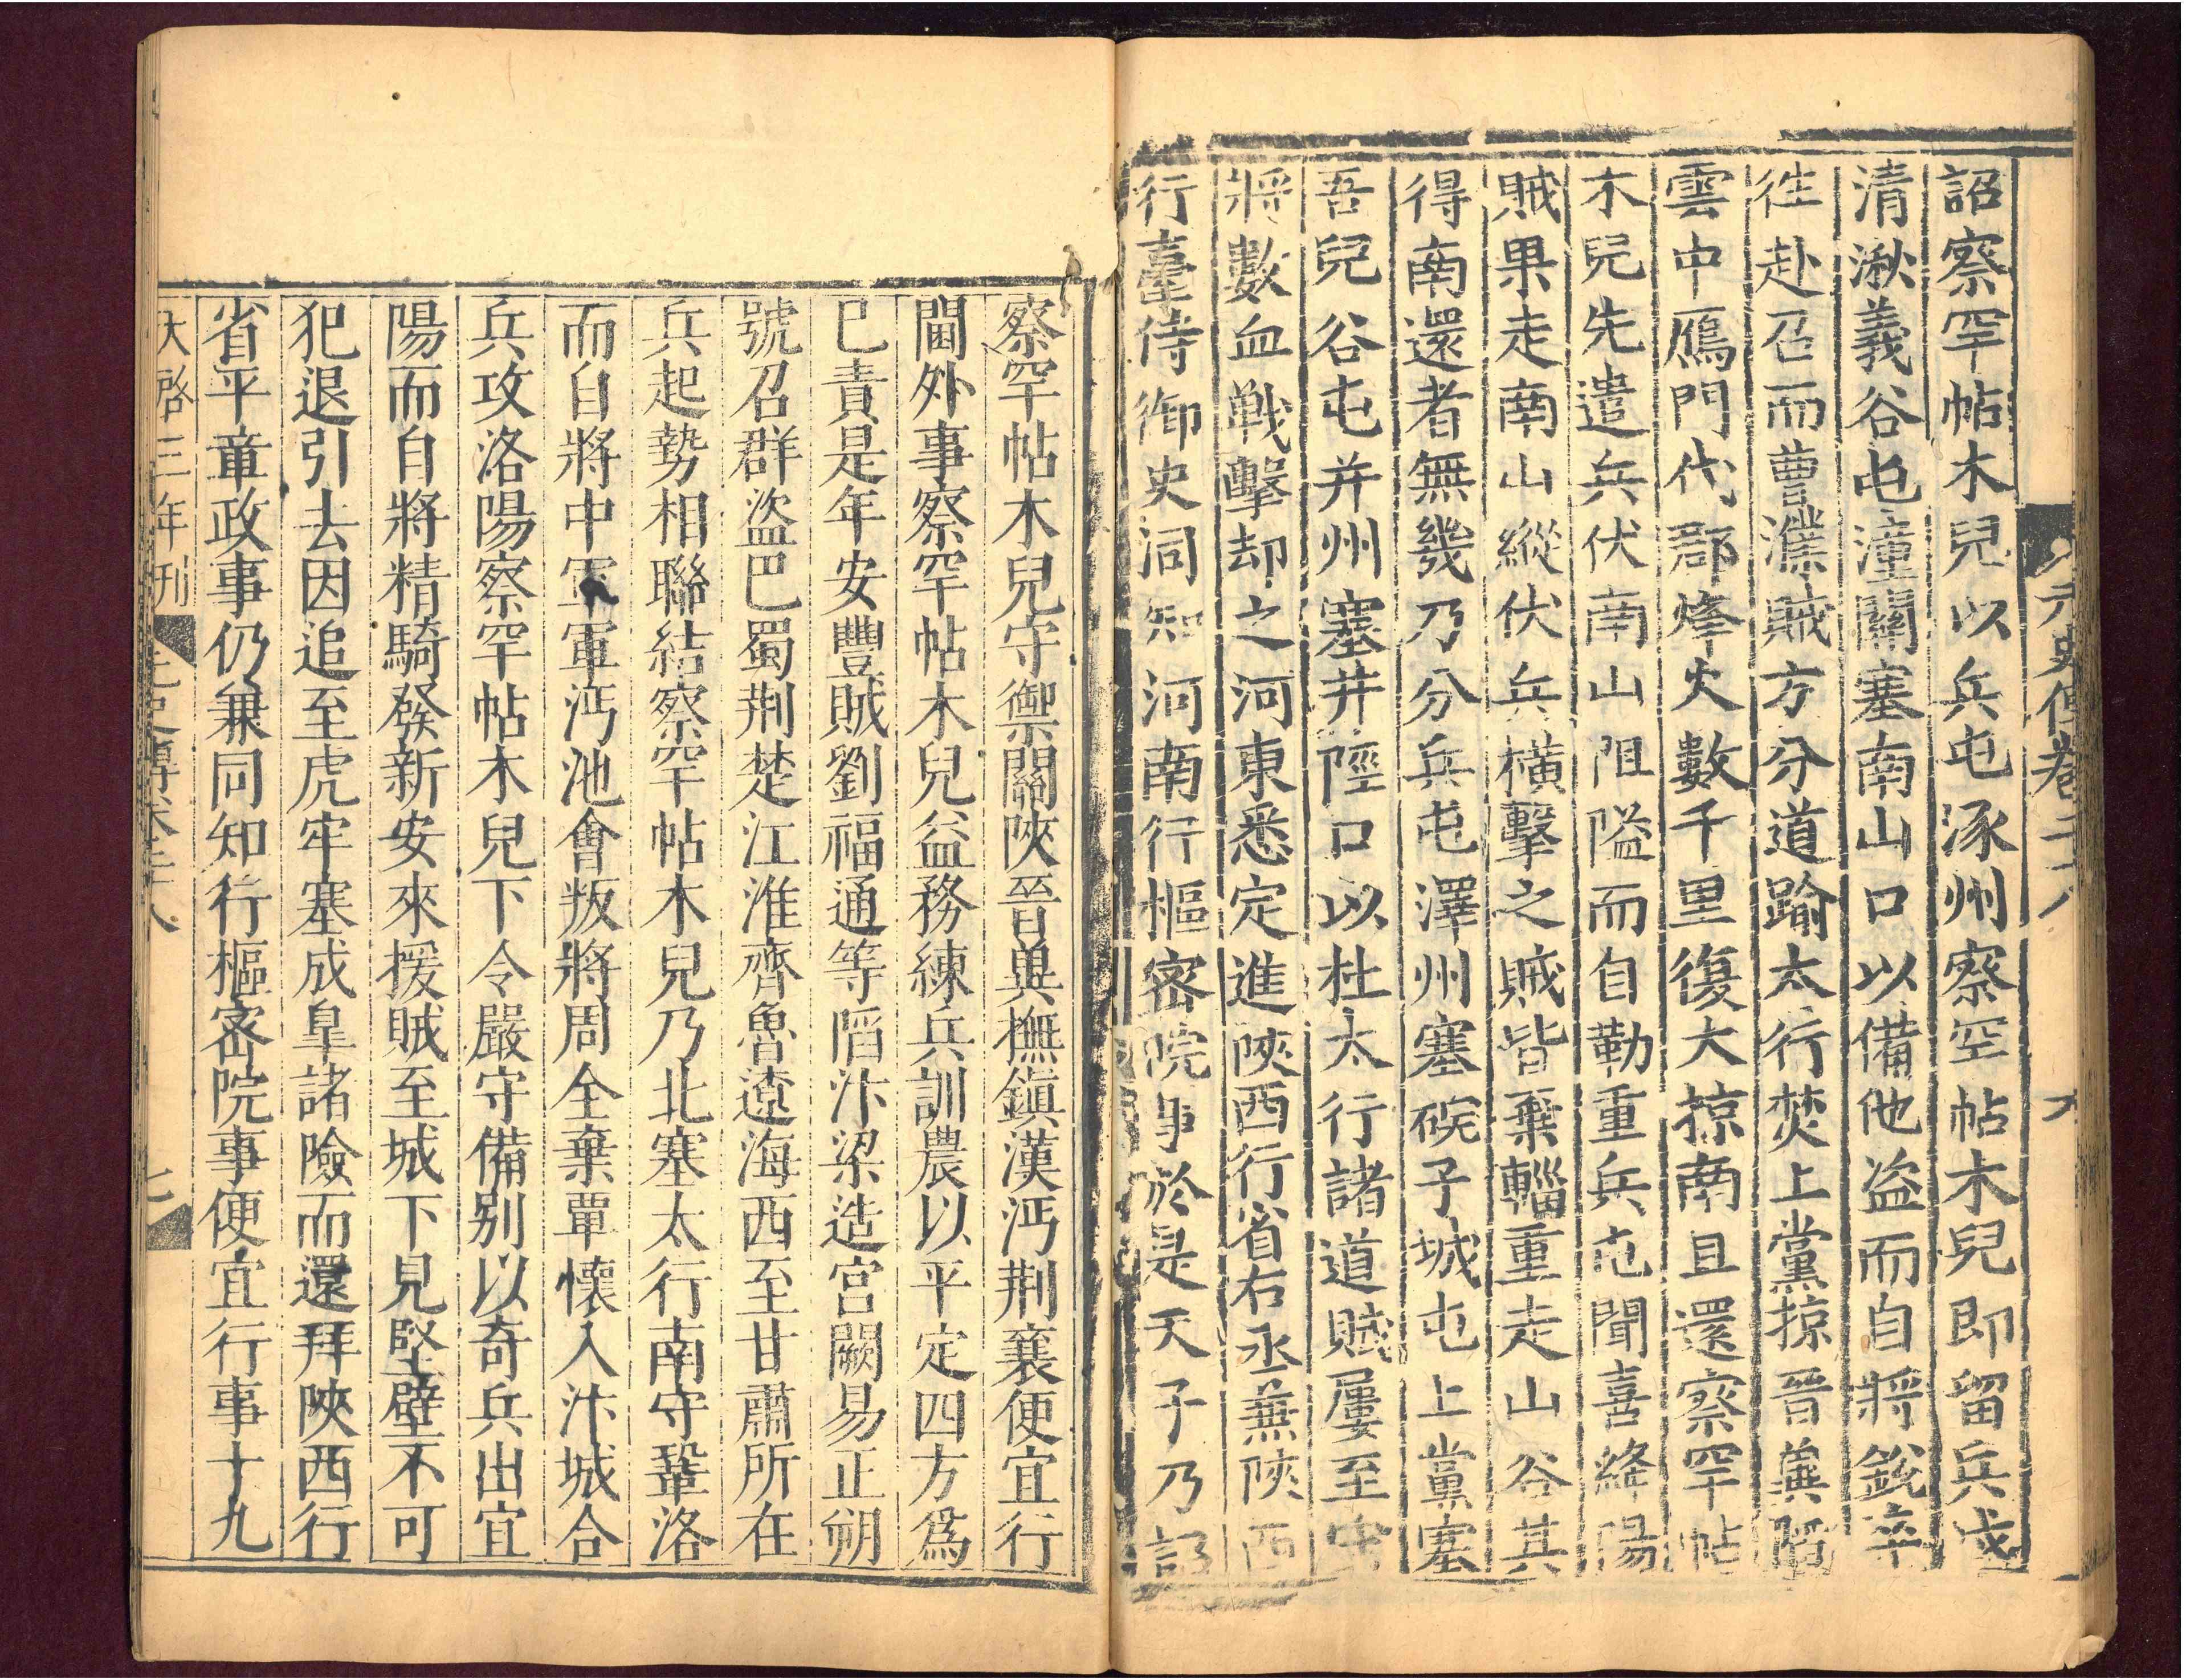 元史傳卷二十八 六
詔察罕帖木兒以兵屯涿州察罕帖木兒即留兵戍
清湫義谷屯潼關塞南山口以備他盗而自將銳卒
徃赴召而曹濮賊方分道踰太行焚上黨掠晉冀陷
雲中鴈門代郡烽火數千里復大掠南且還察罕帖
木兒先遣兵伏南山阻隘而自勒重兵屯聞喜絳陽
賊果走南山縱伏兵橫擊之賊皆棄輜重走山谷其
得南還者無幾乃分兵屯澤州塞碗子城屯上黨塞
吾兒谷屯并州塞井陘口以杜太行諸道賊屢至守
將數血戰擊却之河東悉定進陝西行省右丞兼陝西
行臺侍御史同知河南行樞密院事於是天子乃詔
察罕帖木兒守禦關陝晉冀撫鎮漢沔荆襄便宜行
閫外事察罕帖木兒益務練兵訓農以平定四方爲
巳責是年安豐賊劉福通等䧟汴梁造宫闕易正朔
號召群盜巴蜀荆楚江淮齊魯遼海西至甘肅所在
兵起勢相聯結察罕帖木兒乃北塞太行南守鞏洛
而自將中軍軍沔池會叛將周全棄覃懷入汴城合
兵攻洛陽察罕帖木兒下令嚴守備别以奇兵出宜
陽而自將精騎發新安來援賊至城下見堅壁不可
犯退引去因追至虎牢塞成皐諸險而還拜陝西行
省平章政事仍兼同知行樞密院事便宜行事十九
天啓三年刊 元史傳卷二十八 七